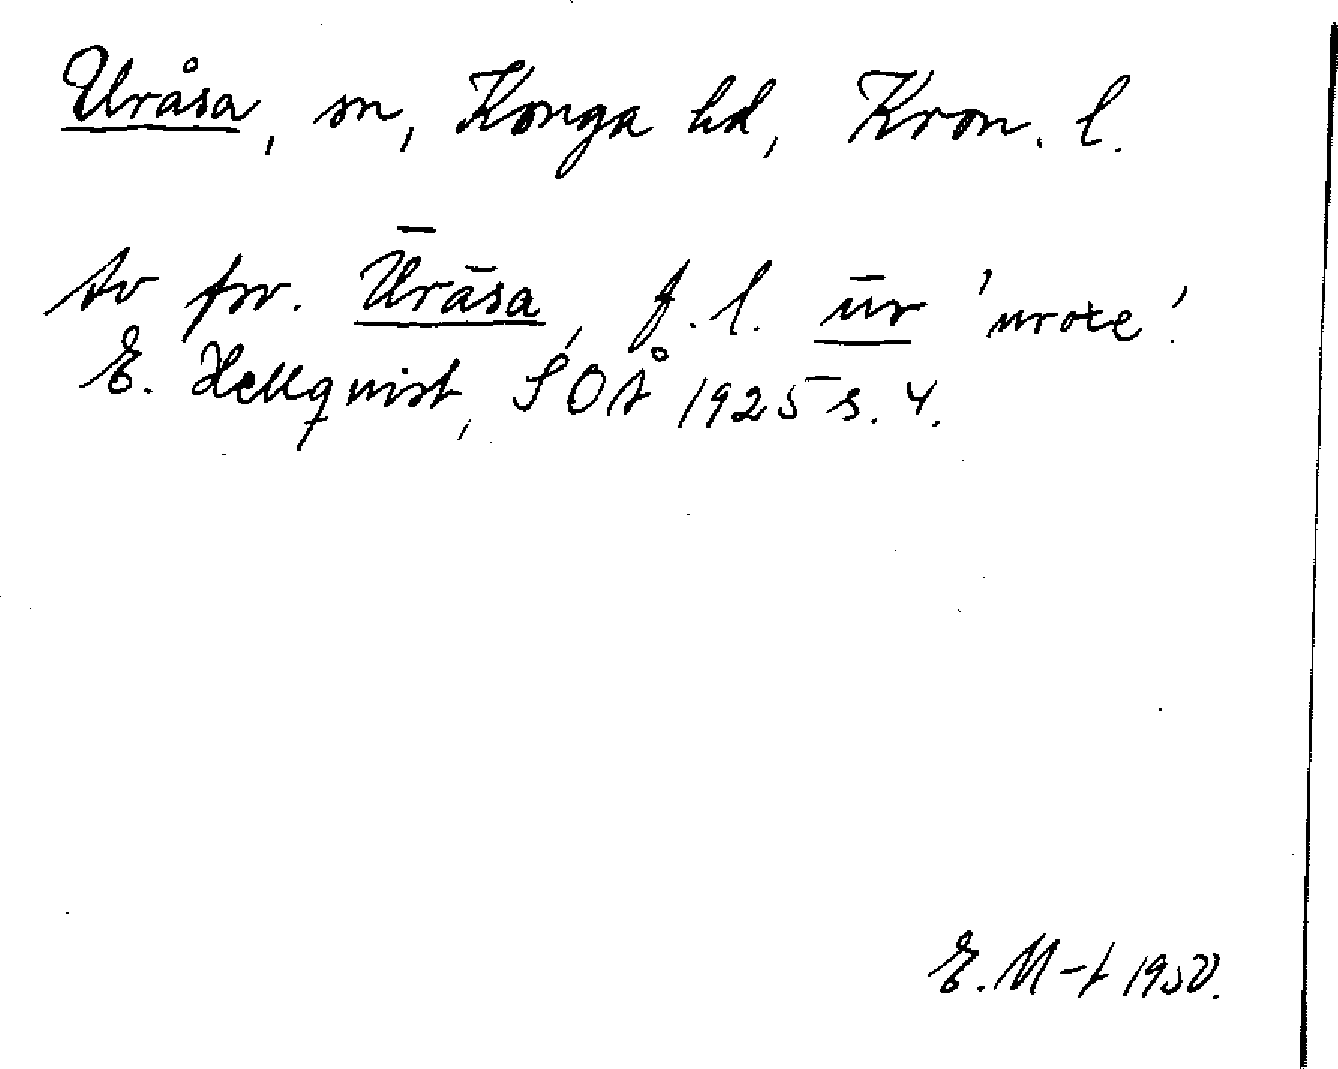 Uråsa, sn, Konga hd, Kron. l.
Av fsv. Ūrāsa, f. l. ūr 'uroxe'.
E. Hellquist, SOÅ 1925 s. 4.
E. M-t 1950.